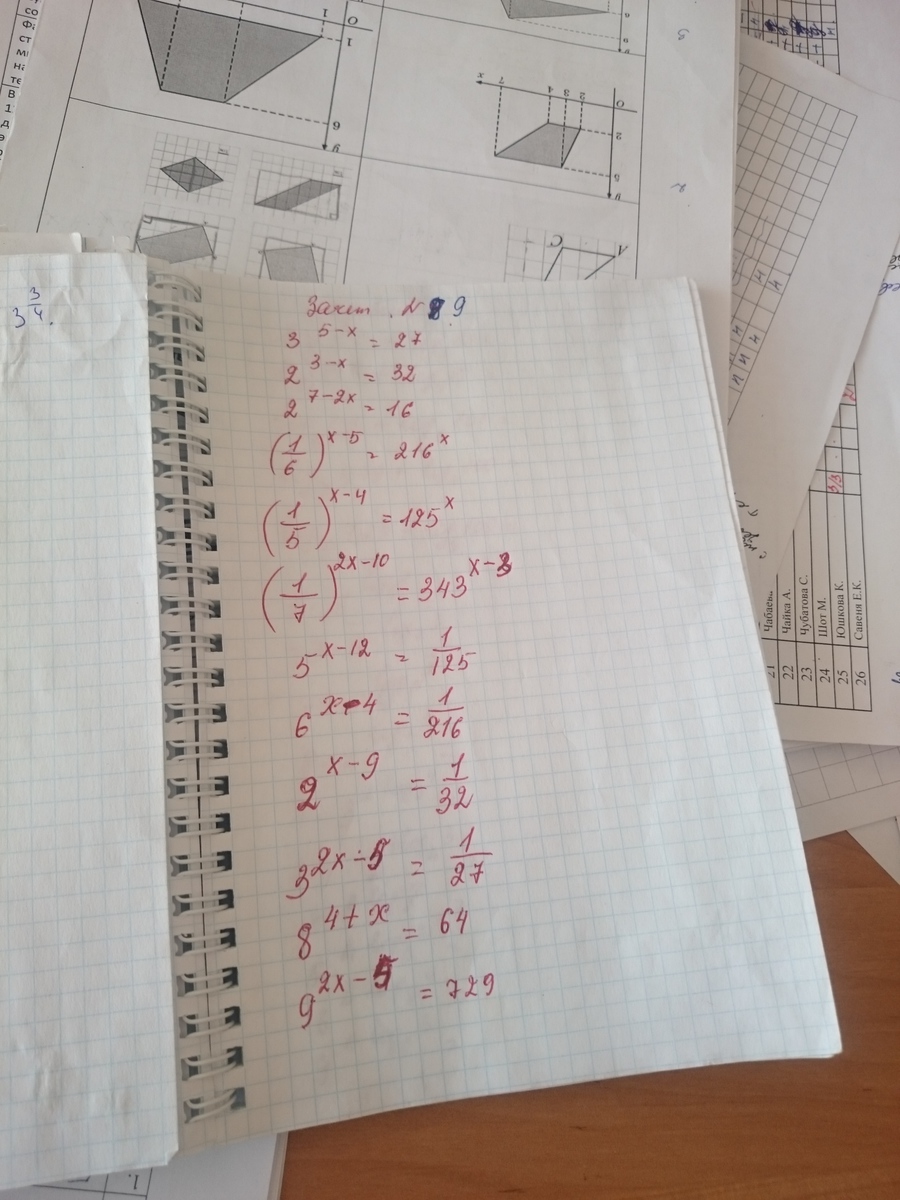 3^{3/4}.
Зачет . N 9
3^{5-x} = 27
2^{3-x} = 32
2^{7-2x} = 16
(1/6)^{x-5} = 216^x
(1/5)^{x-4} = 125^x
(1/7)^{2x-10} = 343^{x-3}
5^{x-12} = 1/125
6^{x-4} = 1/216
2^{x-9} = 1/32
3^{2x-5} = 1/27
8^{4+x} = 64
9^{2x-5} = 729
22 Чайка А.
23 Чубатова С.
24 Шот М.
25 Юшкова К.
26 Савеня Е.К.